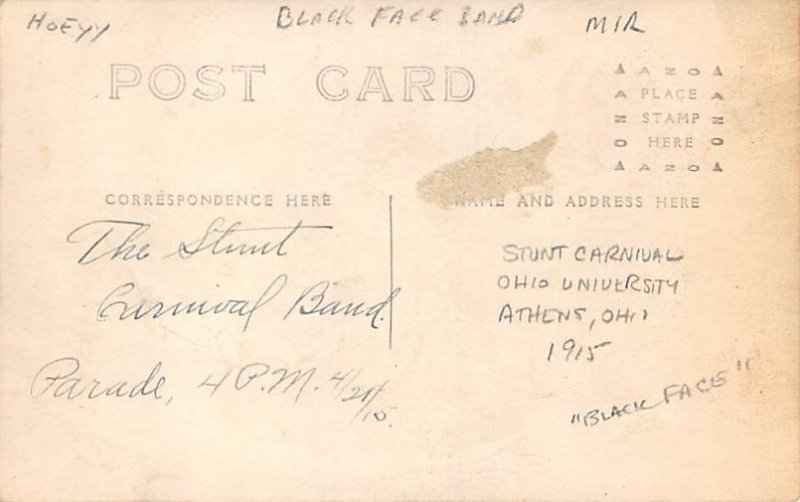 HOEYY BLACK FACE BAND MIR
POST CARD
AZOA
PLACE
STAMP
HERE
AZOA
CORRESPONDENCE HERE
NAME AND ADDRESS HERE
The Stunt
Carnival Band.
Parade, 4 P.M. 4/21/15.
STUNT CARNIVAL
OHIO UNIVERSITY
ATHENS, OHIO
1915
"BLACK FACE"